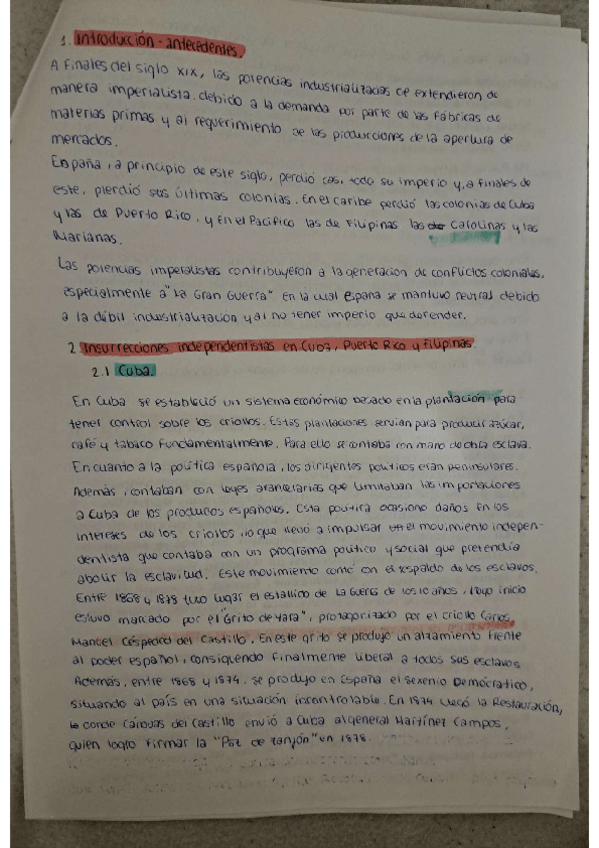 1. Introducción - antecedentes.
A finales del siglo XIX, las potencias industrializadas se extendieron de
manera imperialista debido a la demanda por parte de las fábricas de
materias primas y al requerimiento de las producciones de la apertura de
mercados.
España, a principio de este siglo, perdió casi todo su imperio y, a finales de
este, pierdió sus últimas colonias. En el caribe perdió las colonias de Cuba
y las de Puerto Rico, y en el Pacífico las de Filipinas las Carolinas y las
Marianas.
Las potencias imperalistas contribuyeron a la generación de conflictos coloniales,
especialmente a "La Gran Guerra" en la cual españa se mantuvo neutral debido
a la débil industrialización y al no tener imperio que defender.
2. Insurrecciones independentistas en Cuba, Puerto Rico y Filipinas
2.1 Cuba.
En Cuba se estableció un sistema económico basado en la plantación para
tener control sobre los criollos. Estas plantaciones servían para producir azúcar,
café y tabaco fundamentalmente. Para ello se contaba con mano de obra esclava.
En cuanto a la política española, los dirigentes políticos eran peninsulares.
Además, contaban con leyes arancelarias que limitaban las importaciones
a Cuba de los producos españoles. Esta política ocasiono daños en los
intereses de los criollos, lo que llevó a impulsar el movimiento indepen-
dentista que contaba con un programa político y social que pretendía
abolir la esclavitud. Este movimiento contó con el respaldo de los esclavos.
Entre 1868 y 1878 tuvo lugar el estallido de La Guerra de los 10 años, cuyo inicio
estuvo marcado por el "Grito de Yara", protagonizado por el criollo Carlos
Manuel Céspedes del Castillo. En este grito se produjo un alzamiento frente
al poder español, consiguiendo finalmente liberal a todos sus esclavos
Además, entre 1868 y 1874, se produjo en España el sexenio Democrático,
situando al país en una situación incontrolable. En 1874 llegó la Restauración,
donde Cánovas del Castillo envió a Cuba al general Martínez Campos,
quien logro firmar la "Paz de Zanjón" en 1878.